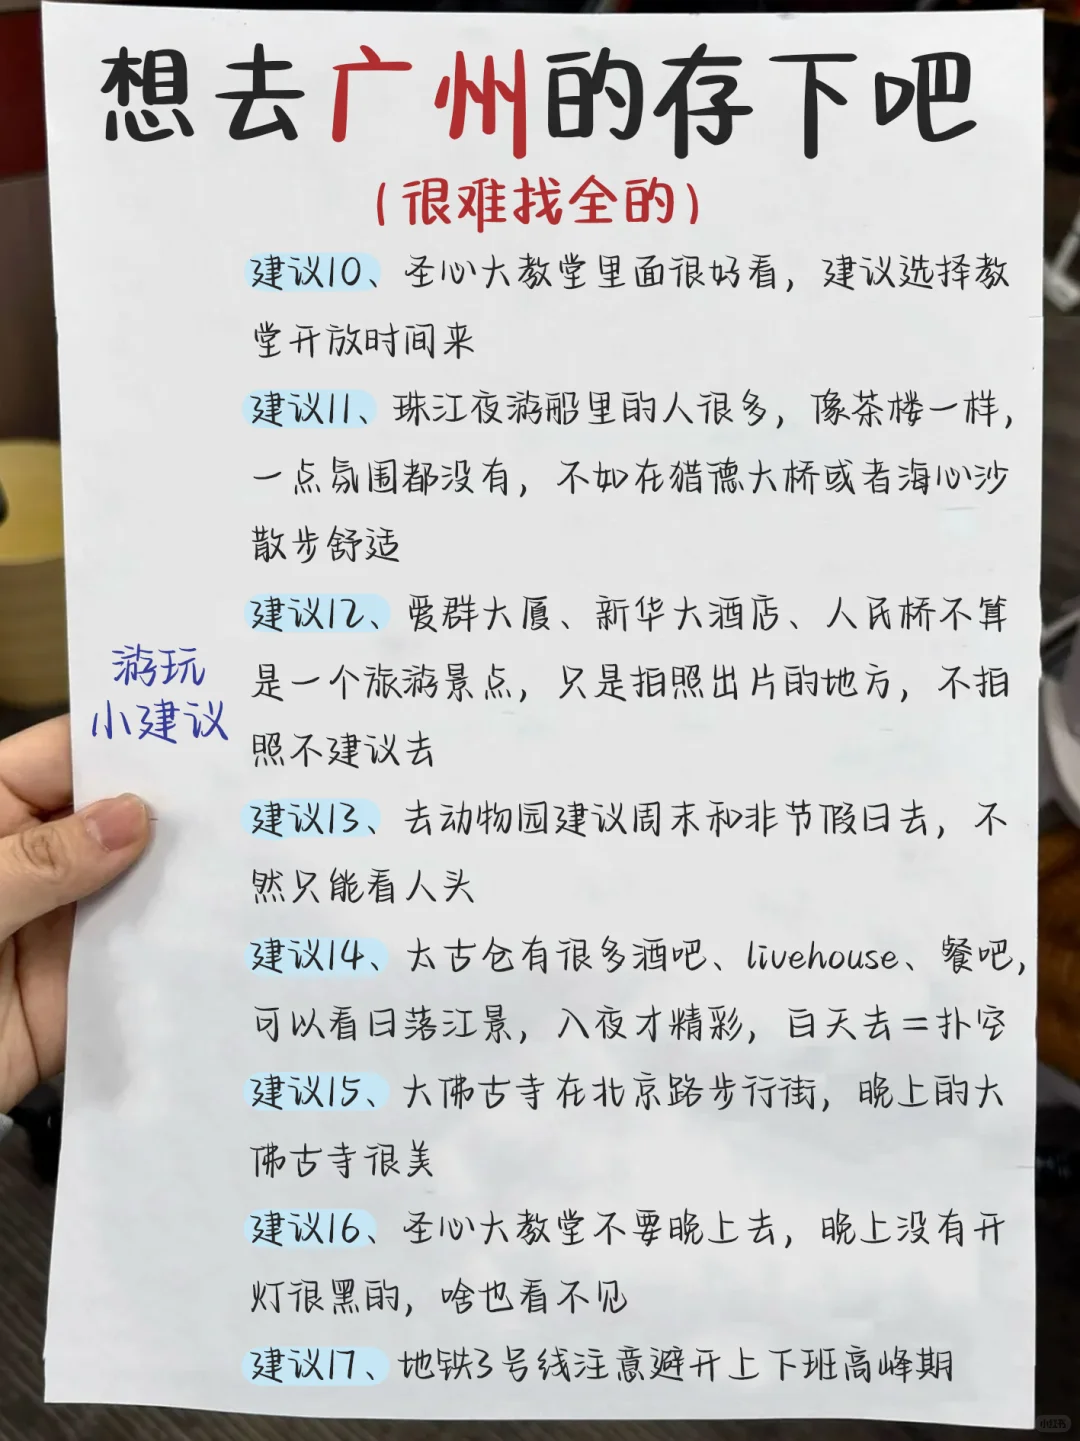 想去广州的存下吧
(很难找全的)
建议10、圣心大教堂里面很好看，建议选择教
堂开放时间来
建议11、珠江夜游船里的人很多，像茶楼一样，
一点氛围都没有，不如在猎德大桥或者海心沙
散步舒适
建议12、爱群大厦、新华大酒店、人民桥不算
是一个旅游景点，只是拍照出片的地方，不拍
照不建议去
游玩
小建议
建议13、去动物园建议周末和非节假日去，不
然只能看人头
建议14、太古仓有很多酒吧、livehouse、餐吧，
可以看日落江景，入夜才精彩，白天去=扑空
建议15、大佛古寺在北京路步行街，晚上的大
佛古寺很美
建议16、圣心大教堂不要晚上去，晚上没有开
灯很黑的，啥也看不见
建议17、地铁3号线注意避开上下班高峰期
小红书